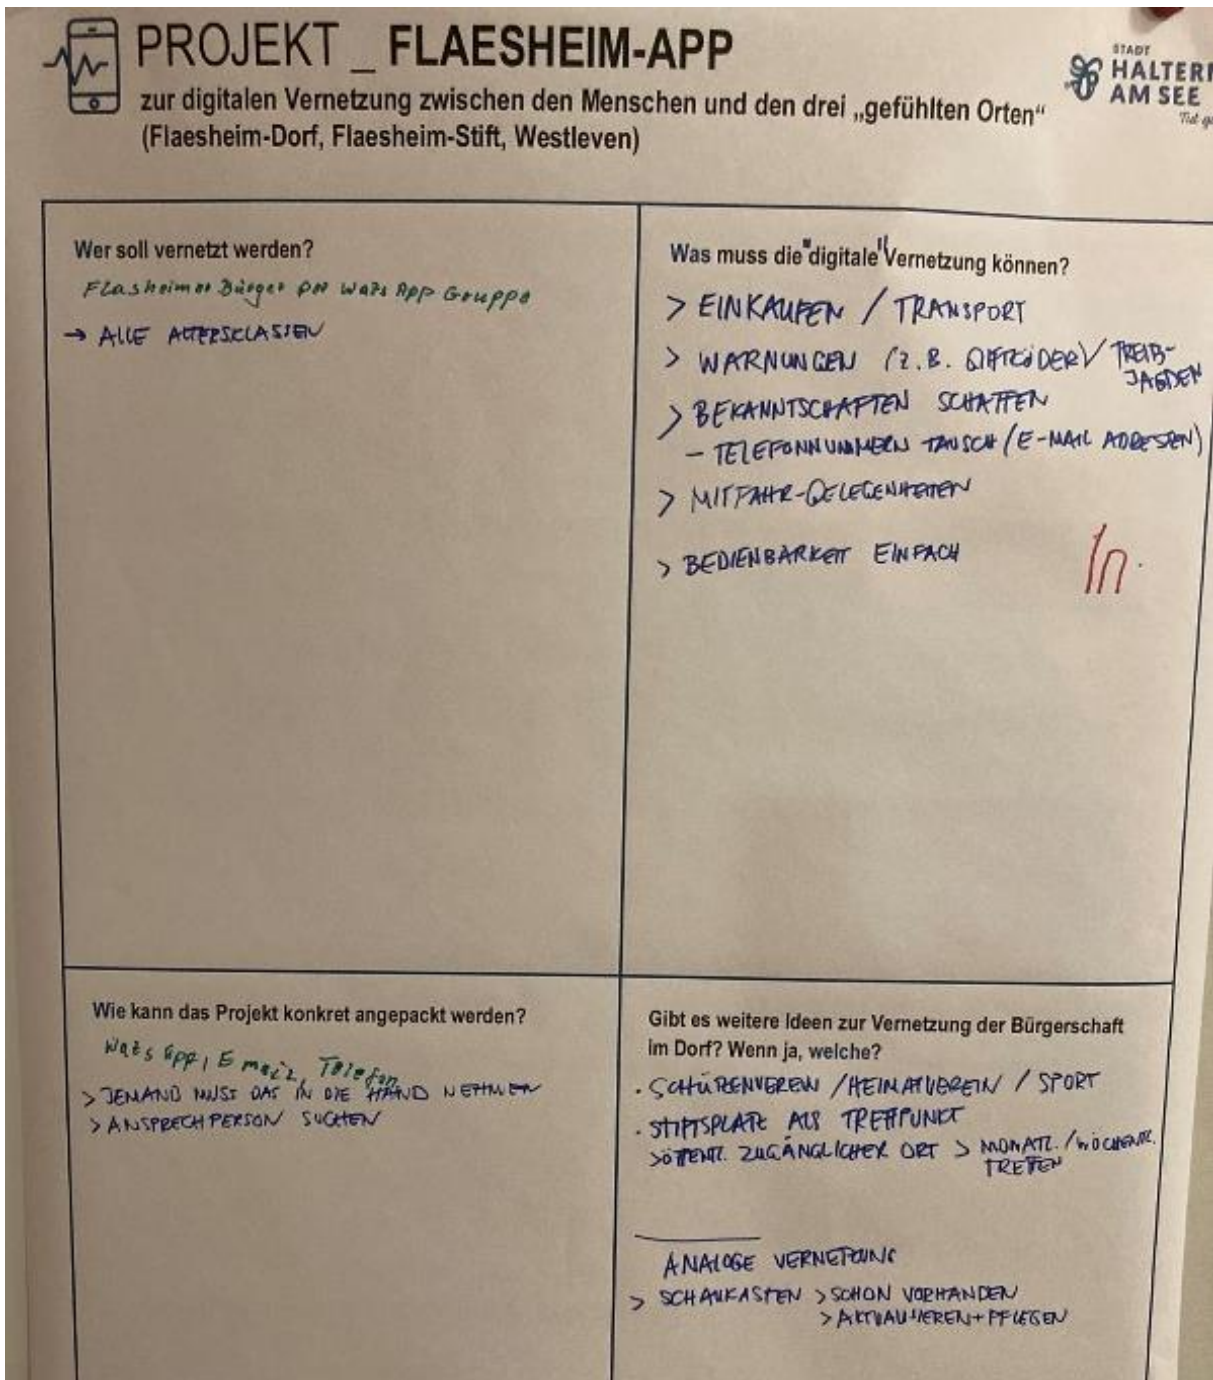 PROJEKT _ FLAESHEIM-APP
zur digitalen Vernetzung zwischen den Menschen und den drei „gefühlten Orten“
(Flaesheim-Dorf, Flaesheim-Stift, Westleven)
STADT
HALTERN
AM SEE
Wer soll vernetzt werden?
Flasheimer Bürger per Wats App Gruppe
→ ALLE ALTERSCLASSEN
Was muss die "digitale" Vernetzung können?
> EINKAUFEN / TRANSPORT
> WARNUNGEN (z.B. GIFTKÖDER) / TREIB-
JAGDEN
> BEKANNTSCHAFTEN SCHAFFEN
- TELEFONNUMMERN TAUSCH (E-MAIL ADRESSEN)
> MITFAHR-GELEGENHEITEN
> BEDIENBARKEIT EINFACH
Wie kann das Projekt konkret angepackt werden?
Wats App, E mail, Telefon
> JEMAND MUSS DAS IN DIE HAND NEHMEN
> ANSPRECHPERSON SUCHEN
Gibt es weitere Ideen zur Vernetzung der Bürgerschaft
im Dorf? Wenn ja, welche?
· SCHÜTZENVEREIN / HEIMATVEREIN / SPORT
· STIFTSPLATZ ALS TREFFPUNKT
> ÖFFENTL. ZUGÄNGLICHER ORT > MONATL. / WÖCHENTL.
TREFFEN
ANALOGE VERNETZUNG
> SCHAUKASTEN > SCHON VORHANDEN
> AKTUALISIEREN + PFLEGEN